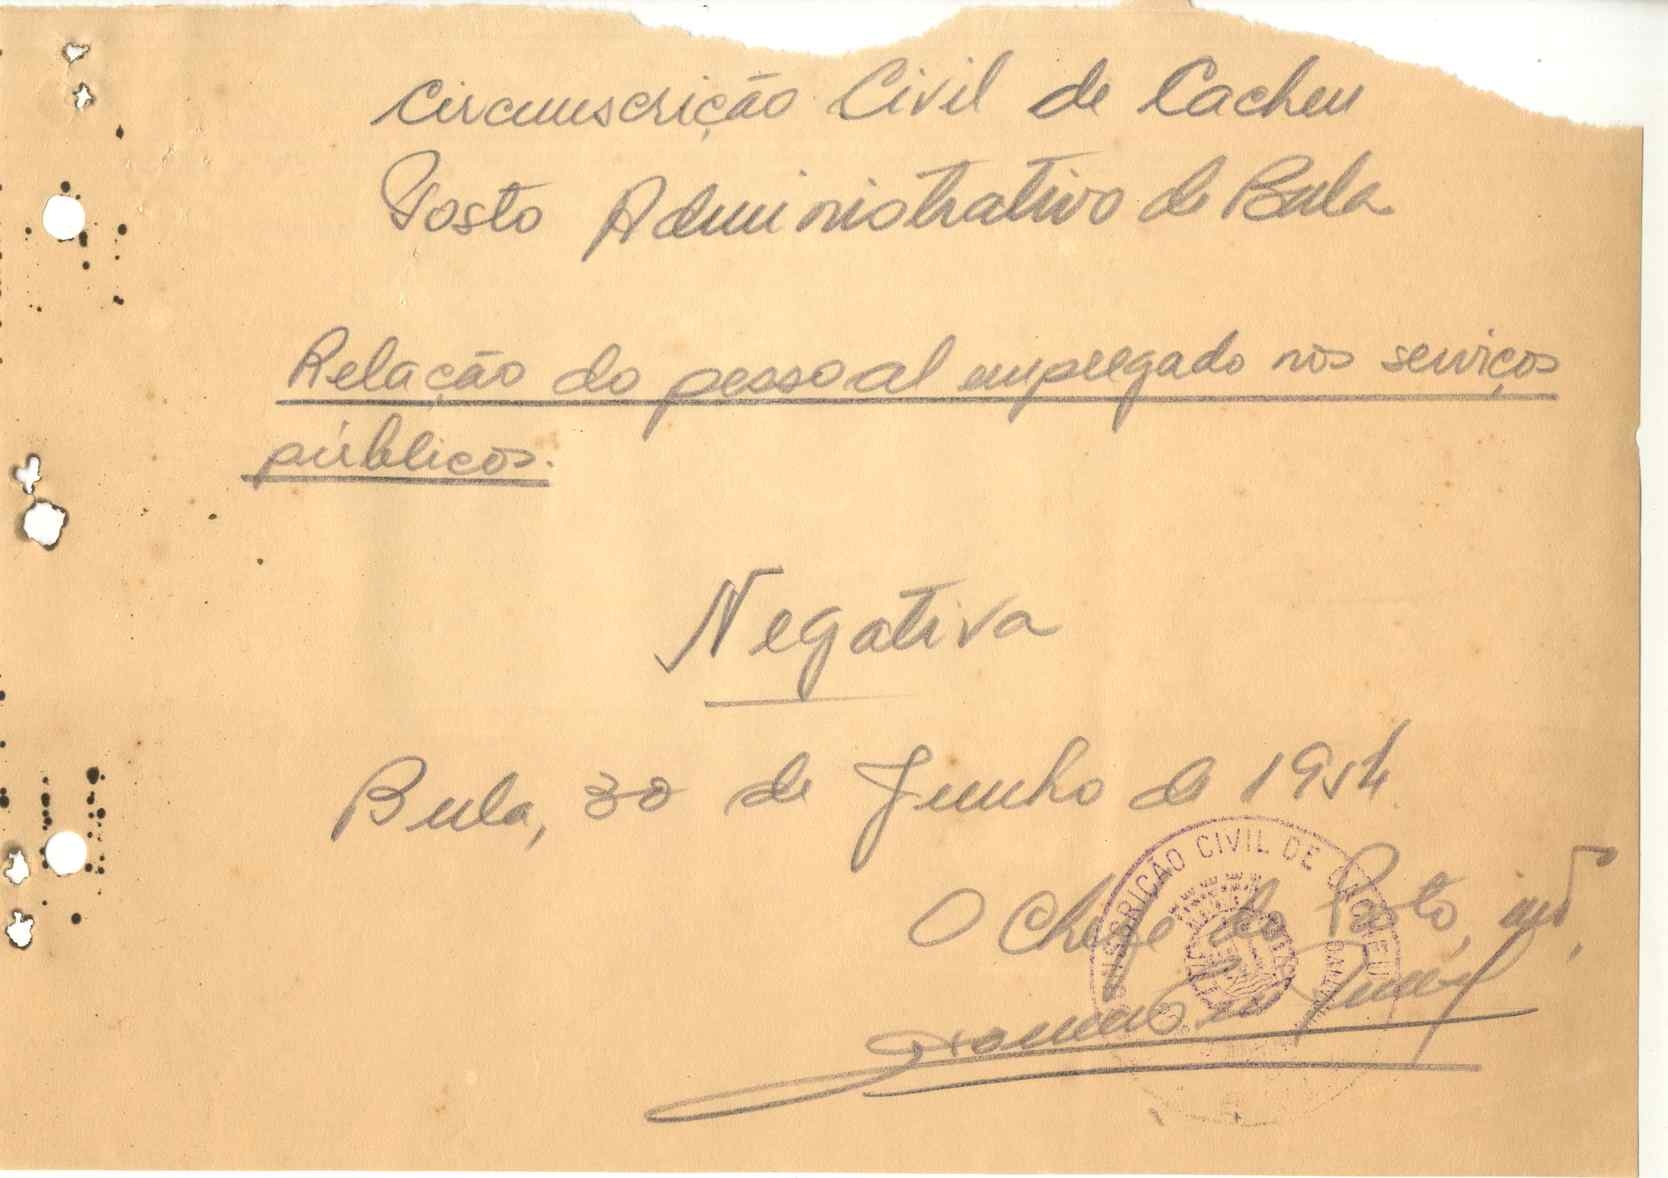 Circunscrição Civil de Cacheu
Posto Administrativo de Bula
Relação do pessoal empregado nos serviços
públicos.
Negativa
Bula, 30 de Junho de 1954.
O Chefe do Posto, intº,
CIRCUNSCRIÇÃO CIVIL DE CACHEU